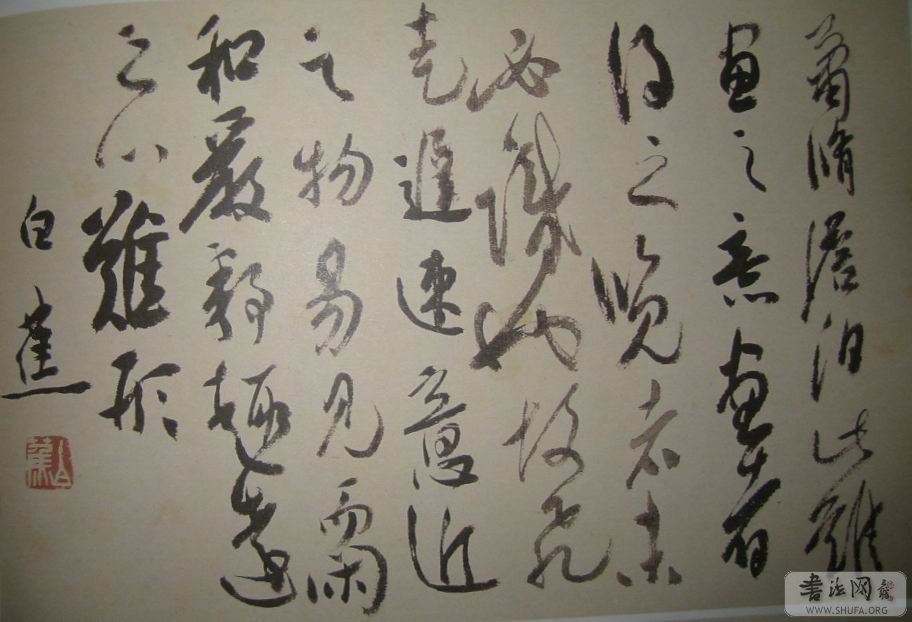 蕭條澹泊此難
畫之意畫者
得之覽者未
必識也故飛
走遲速意近
之物易見而閑
和嚴靜趣遠
之心難形
白蕉
白蕉
書法网
WWW.SHUFA.ORG